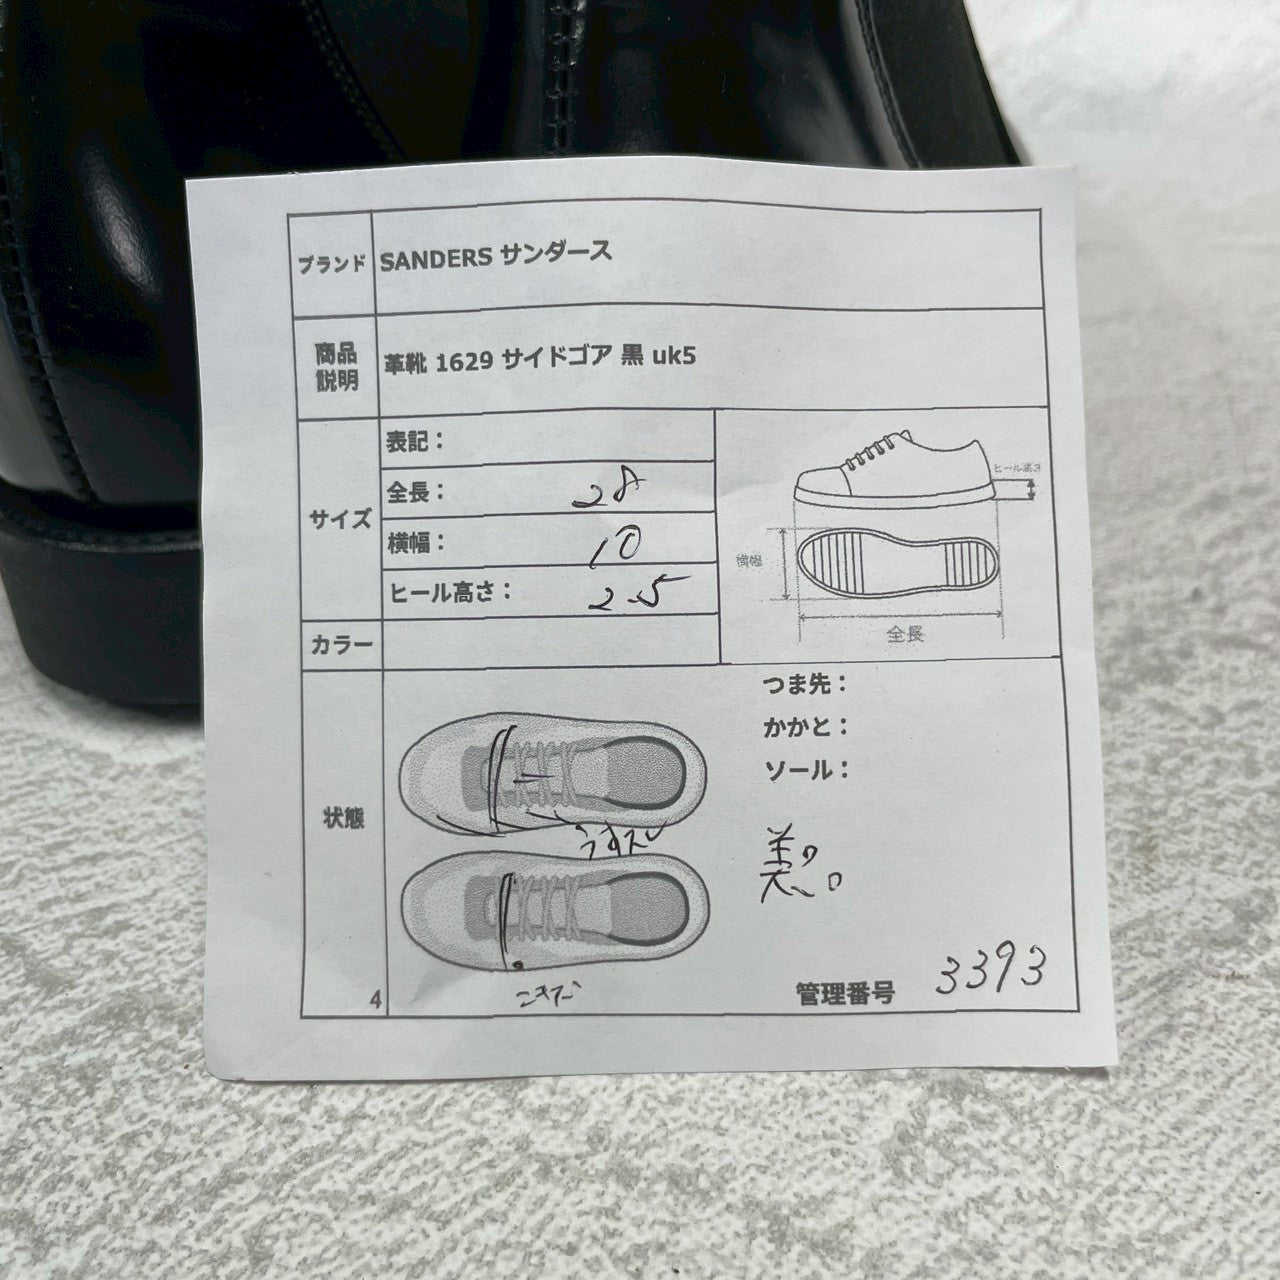 ブランド SANDERS サンダース
商品説明 革靴 1629 サイドゴア 黒 uk5
サイズ
表記：
全長： 28
横幅： 10
ヒール高さ： 2.5
ヒール高さ
横幅
全長
カラー
状態
つま先：
かかと：
ソール：
うすスレ
美
管理番号 3393
4